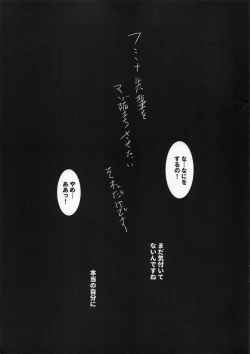 フミナ先輩を
マゾ堕ちさせたい
それだけです
な…なにを
するの！
やめ…
ああっ！
まだ気付いて
ないんですね
本当の自分に